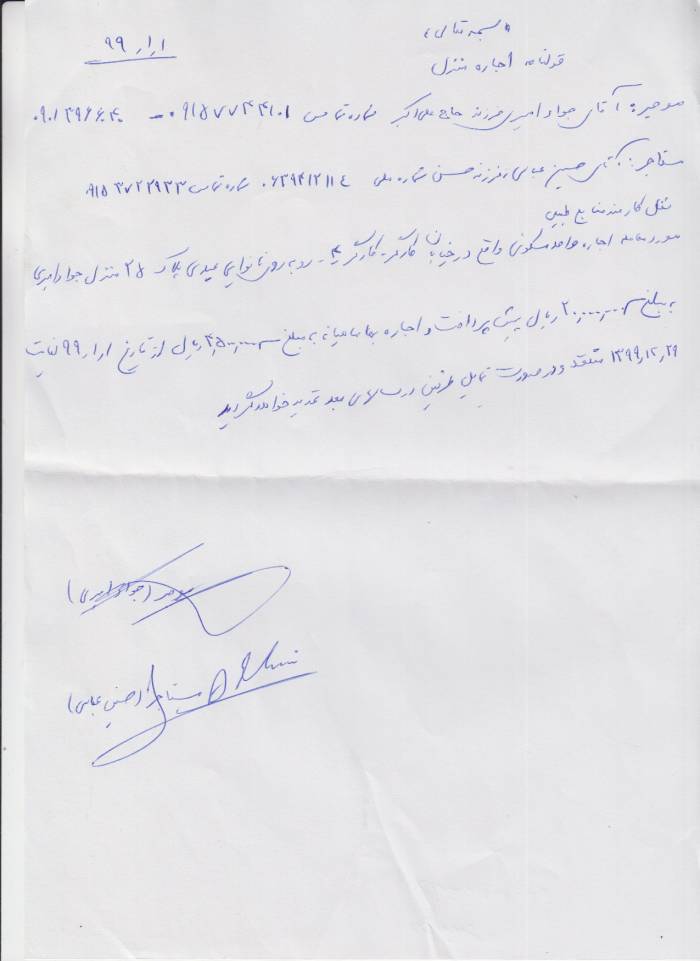 بسمه تعالی
۹۹/۱/۱
قولنامه اجاره منزل
موجر: آقای جواد امیری فرزند حاج علی اکبر شماره تماس ۰۹۱۵۷۷۳۴۱۰۱ - ۰۹۰۱۳۹۶۶۰۴۰
مستاجر: آقای حسین عباسی فرزند حسن شماره ملی ۰۶۳۹۴۱۲۱۱۴ شماره تماس ۰۹۱۵۳۷۲۲۹۳۳
شغل کارمند منابع طبیعی
مورد معامله اجاره واحد مسکونی واقع در خیابان کارگر - کارگر ۴ - روبه روی نانوایی عیدی پلاک ۲۵ منزل جواد امیری
به مبلغ ۲۰,۰۰۰,۰۰۰ ریال پیش پرداخت و اجاره بها ماهیانه به مبلغ ۴,۵۰۰,۰۰۰ ریال از تاریخ ۹۹/۱/۱ لغایت
۱۳۹۹/۱۲/۲۹ منعقد و در صورت تمایل طرفین در سالهای بعد تمدید خواهد گردید
موجر (جواد امیری)
مستاجر (حسین عباسی)